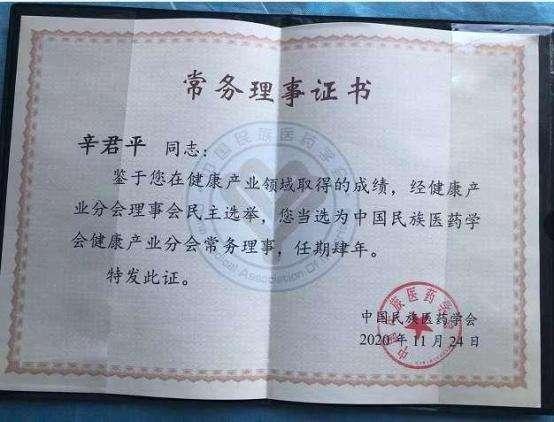 常务理事证书
辛君平 同志：
鉴于您在健康产业领域取得的成绩，经健康产
业分会理事会民主选举，您当选为中国民族医药学
会健康产业分会常务理事，任期肆年。
特发此证。
中国民族医药学会
2020年11月24日
中国民族医药学会